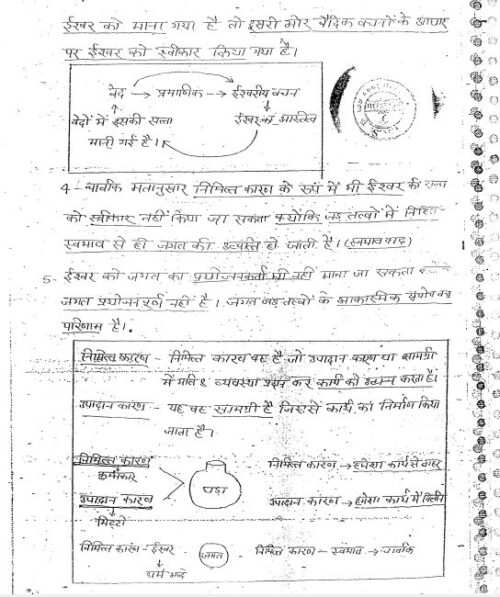 ईश्वर को माना गया है तो दूसरी ओर वैदिक वचनों के आधार
पर ईश्वर को स्वीकार किया गया है।
वेद → प्रमाणिक → ईश्वरीय वचन
वेदों में इसकी सत्ता ईश्वर का अस्तित्व
मानी गई है।
4- चार्वाक मतानुसार निमित्त कारण के रूप में भी ईश्वर की सत्ता
को स्वीकार नहीं किया जा सकता क्योंकि जड़ तत्वों में निहित
स्वभाव से ही जगत की उत्पत्ति हो जाती है। (स्वभाववाद)
5- ईश्वर को जगत का प्रयोजनकर्ता भी नहीं माना जा सकता
जगत प्रयोजनपूर्ण नहीं है। जगत जड़ तत्वों के आकस्मिक संयोग का
परिणाम है।
निमित्त कारण - निमित्त कारण वह है जो उपादान कारण या सामग्री
में गति & व्यवस्था प्रदान कर कार्य को उत्पन्न करता है।
उपादान कारण - यह वह सामग्री है जिससे कार्य का निर्माण किया
जाता है।
निमित्त कारण निमित्त कारण → हमेशा कार्य से बाहर
कुम्भकार
घड़ा
उपादान कारण उपादान कारण → हमेशा कार्य में
मिट्टी
निमित्त कारण - ईश्वर जगत निमित्त कारण - स्वभाव → चार्वाक